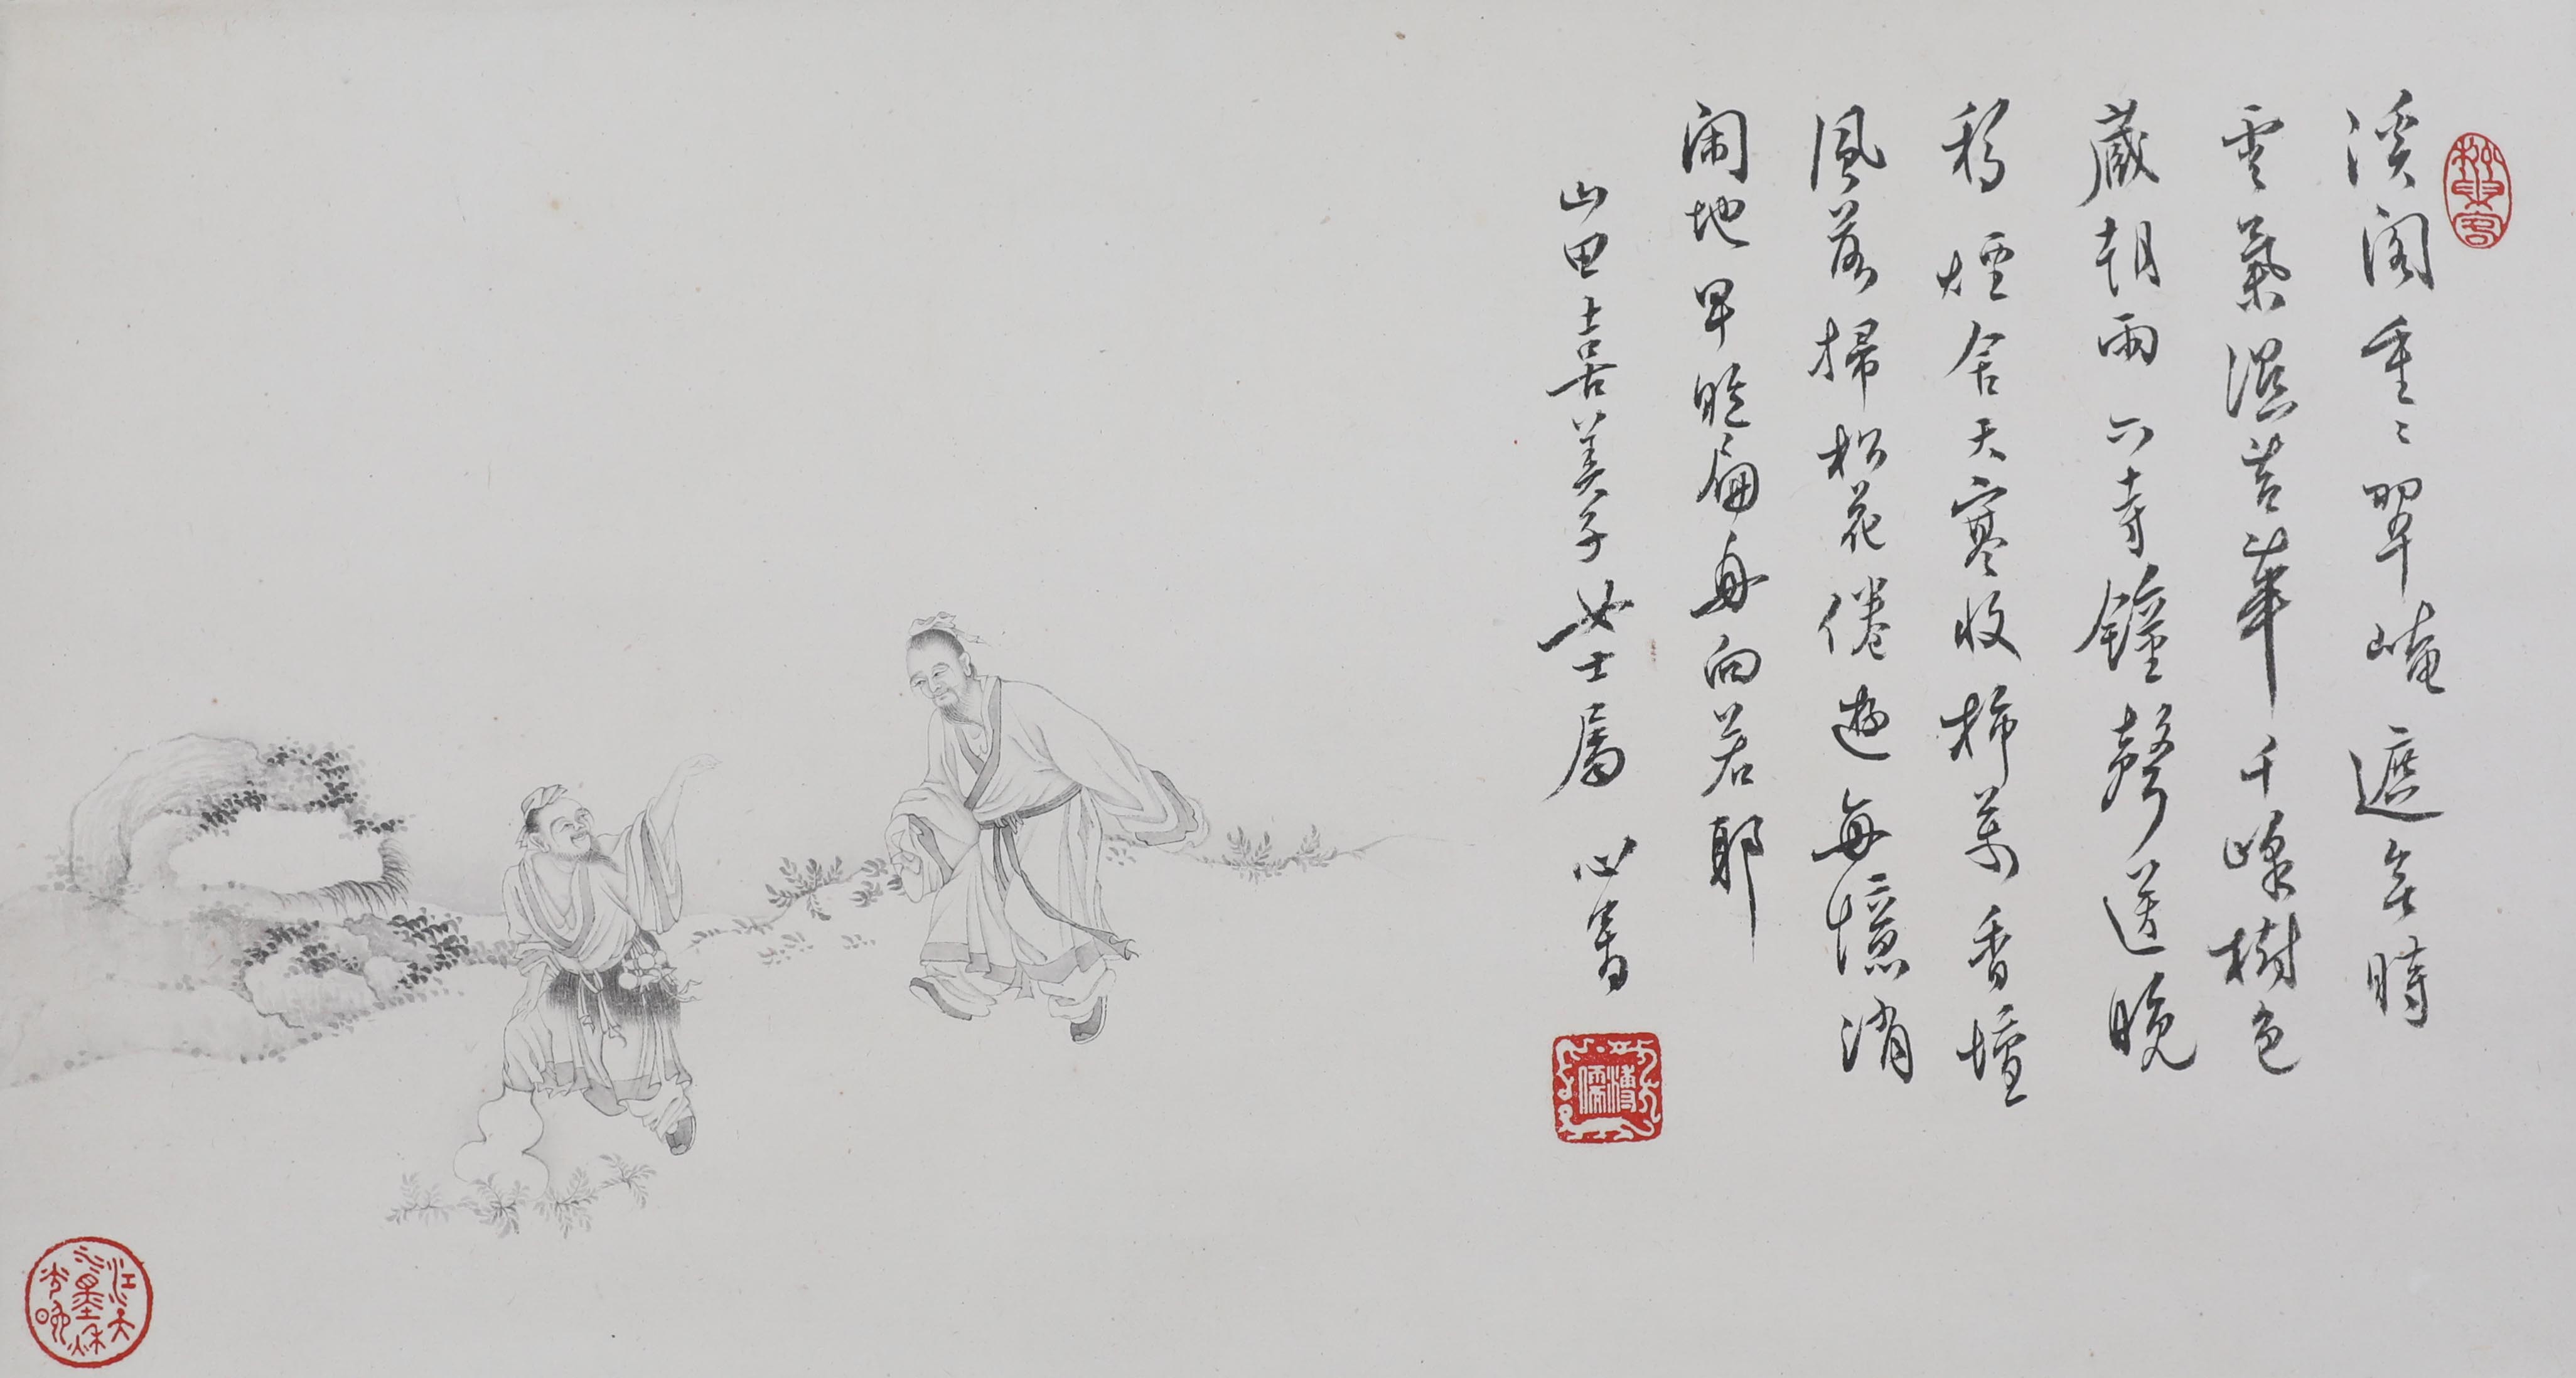 溪閣重〻翠崦遮無時
雲氣濕苔華千峰樹色
藏朝雨六寺鐘聲送晚
鴉煙舍天寒收柿葉香壇
風落掃松花倦遊每憶消
閑地早晚扁舟向若耶
山田喜美子女士屬 心畬
溥儒